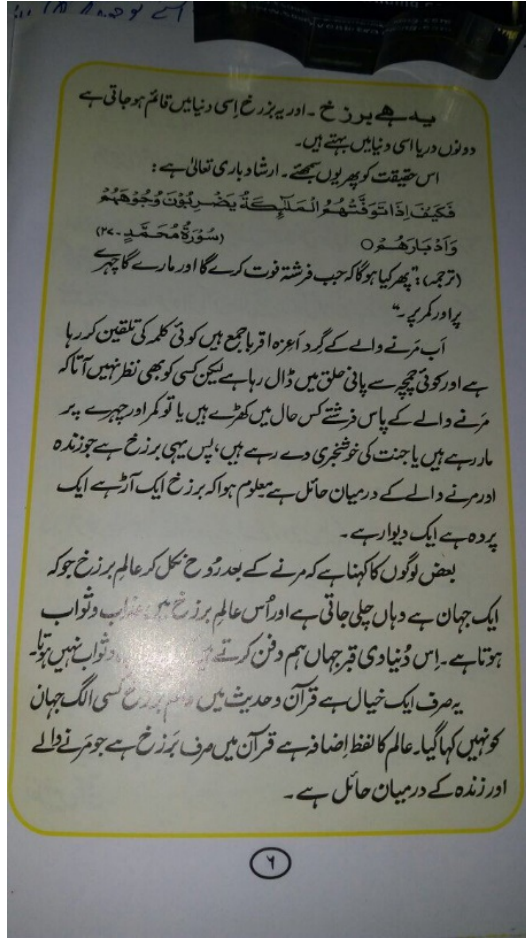 یہ ہے برزخ ۔ اور یہ برزخ اِسی دنیا میں قائم ہو جاتی ہے
دونوں دریا اسی دنیا میں بہتے ہیں۔
اس حقیقت کو پھر یوں سمجھئے۔ ارشاد باری تعالیٰ ہے :
فَكَيْفَ اِذَا تَوَفَّتْهُمُ الْمَلٰٓئِكَةُ يَضْرِبُوْنَ وُجُوْهَهُمْ
وَاَدْبَارَهُمْ ○ (سُوْرَةُ مُحَمَّدٍ ۔ ۲۷)
(ترجمہ) :" پھر کیا ہوگا کہ جب فرشتہ فوت کرے گا اور مارے گا چہرے
پر اور کمر پر۔"
اَب مَرنے والے کے گِرد اَعِزہ اقربا جمع ہیں کوئی کلمہ کی تلقین کر رہا
ہے اور کوئی چمچے سے پانی حلق میں ڈال رہا ہے لیکن کسی کو بھی نظر نہیں آتا کہ
مَرنے والے کے پاس فرشتے کس حال میں کھڑے ہیں یا تو کمر اور چہرے پر
مار رہے ہیں یا جنت کی خوشخبری دے رہے ہیں، پس یہی برزخ ہے جو زندہ
اور مرنے والے کے درمیان حائل ہے معلوم ہوا کہ برزخ ایک آڑ ہے ایک
پردہ ہے ایک دیوار ہے ۔
بعض لوگوں کا کہنا ہے کہ مرنے کے بعد رُوح نکل کر عالمِ برزخ جو کہ
ایک جہان ہے وہاں چلی جاتی ہے اور اُس عالمِ برزخ میں عذاب و ثواب
ہوتا ہے۔ اِس دُنیاوی قبر جہاں ہم دفن کرتے ہیں و ثواب نہیں ہوتا۔
یہ صرف ایک خیال ہے قرآن و حدیث میں عالمِ برزخ کسی الگ جہان
کو نہیں کہا گیا۔ عالم کا لفظ اِضافہ ہے قرآن میں صرف بَرزخ ہے جو مَرنے والے
اور زندہ کے درمیان حائل ہے ۔
۶